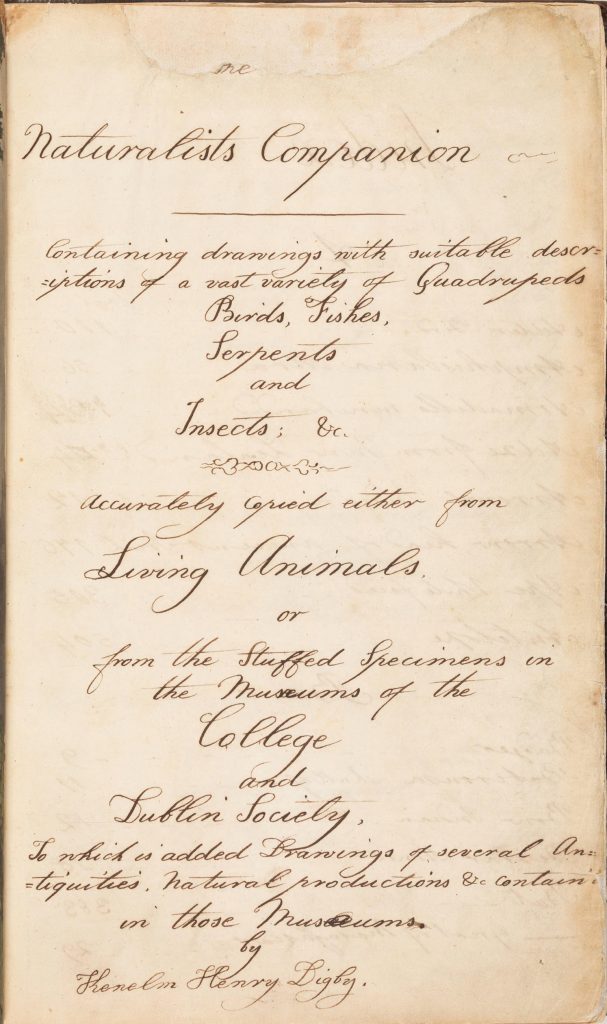 The
Naturalists Companion
Containing drawings with suitable descr=
=iptions of a vast variety of Quadrupeds
Birds, Fishes,
Serpents
and
Insects; &c.
Accurately copied either from
Living Animals.
or
from the Stuffed Specimens in
the Museums of the
College
and
Dublin Society,
To which is added Drawings of several An=
=tiquities. Natural productions &c contain:
in those Museums.
by
Kenelm Henry Digby.